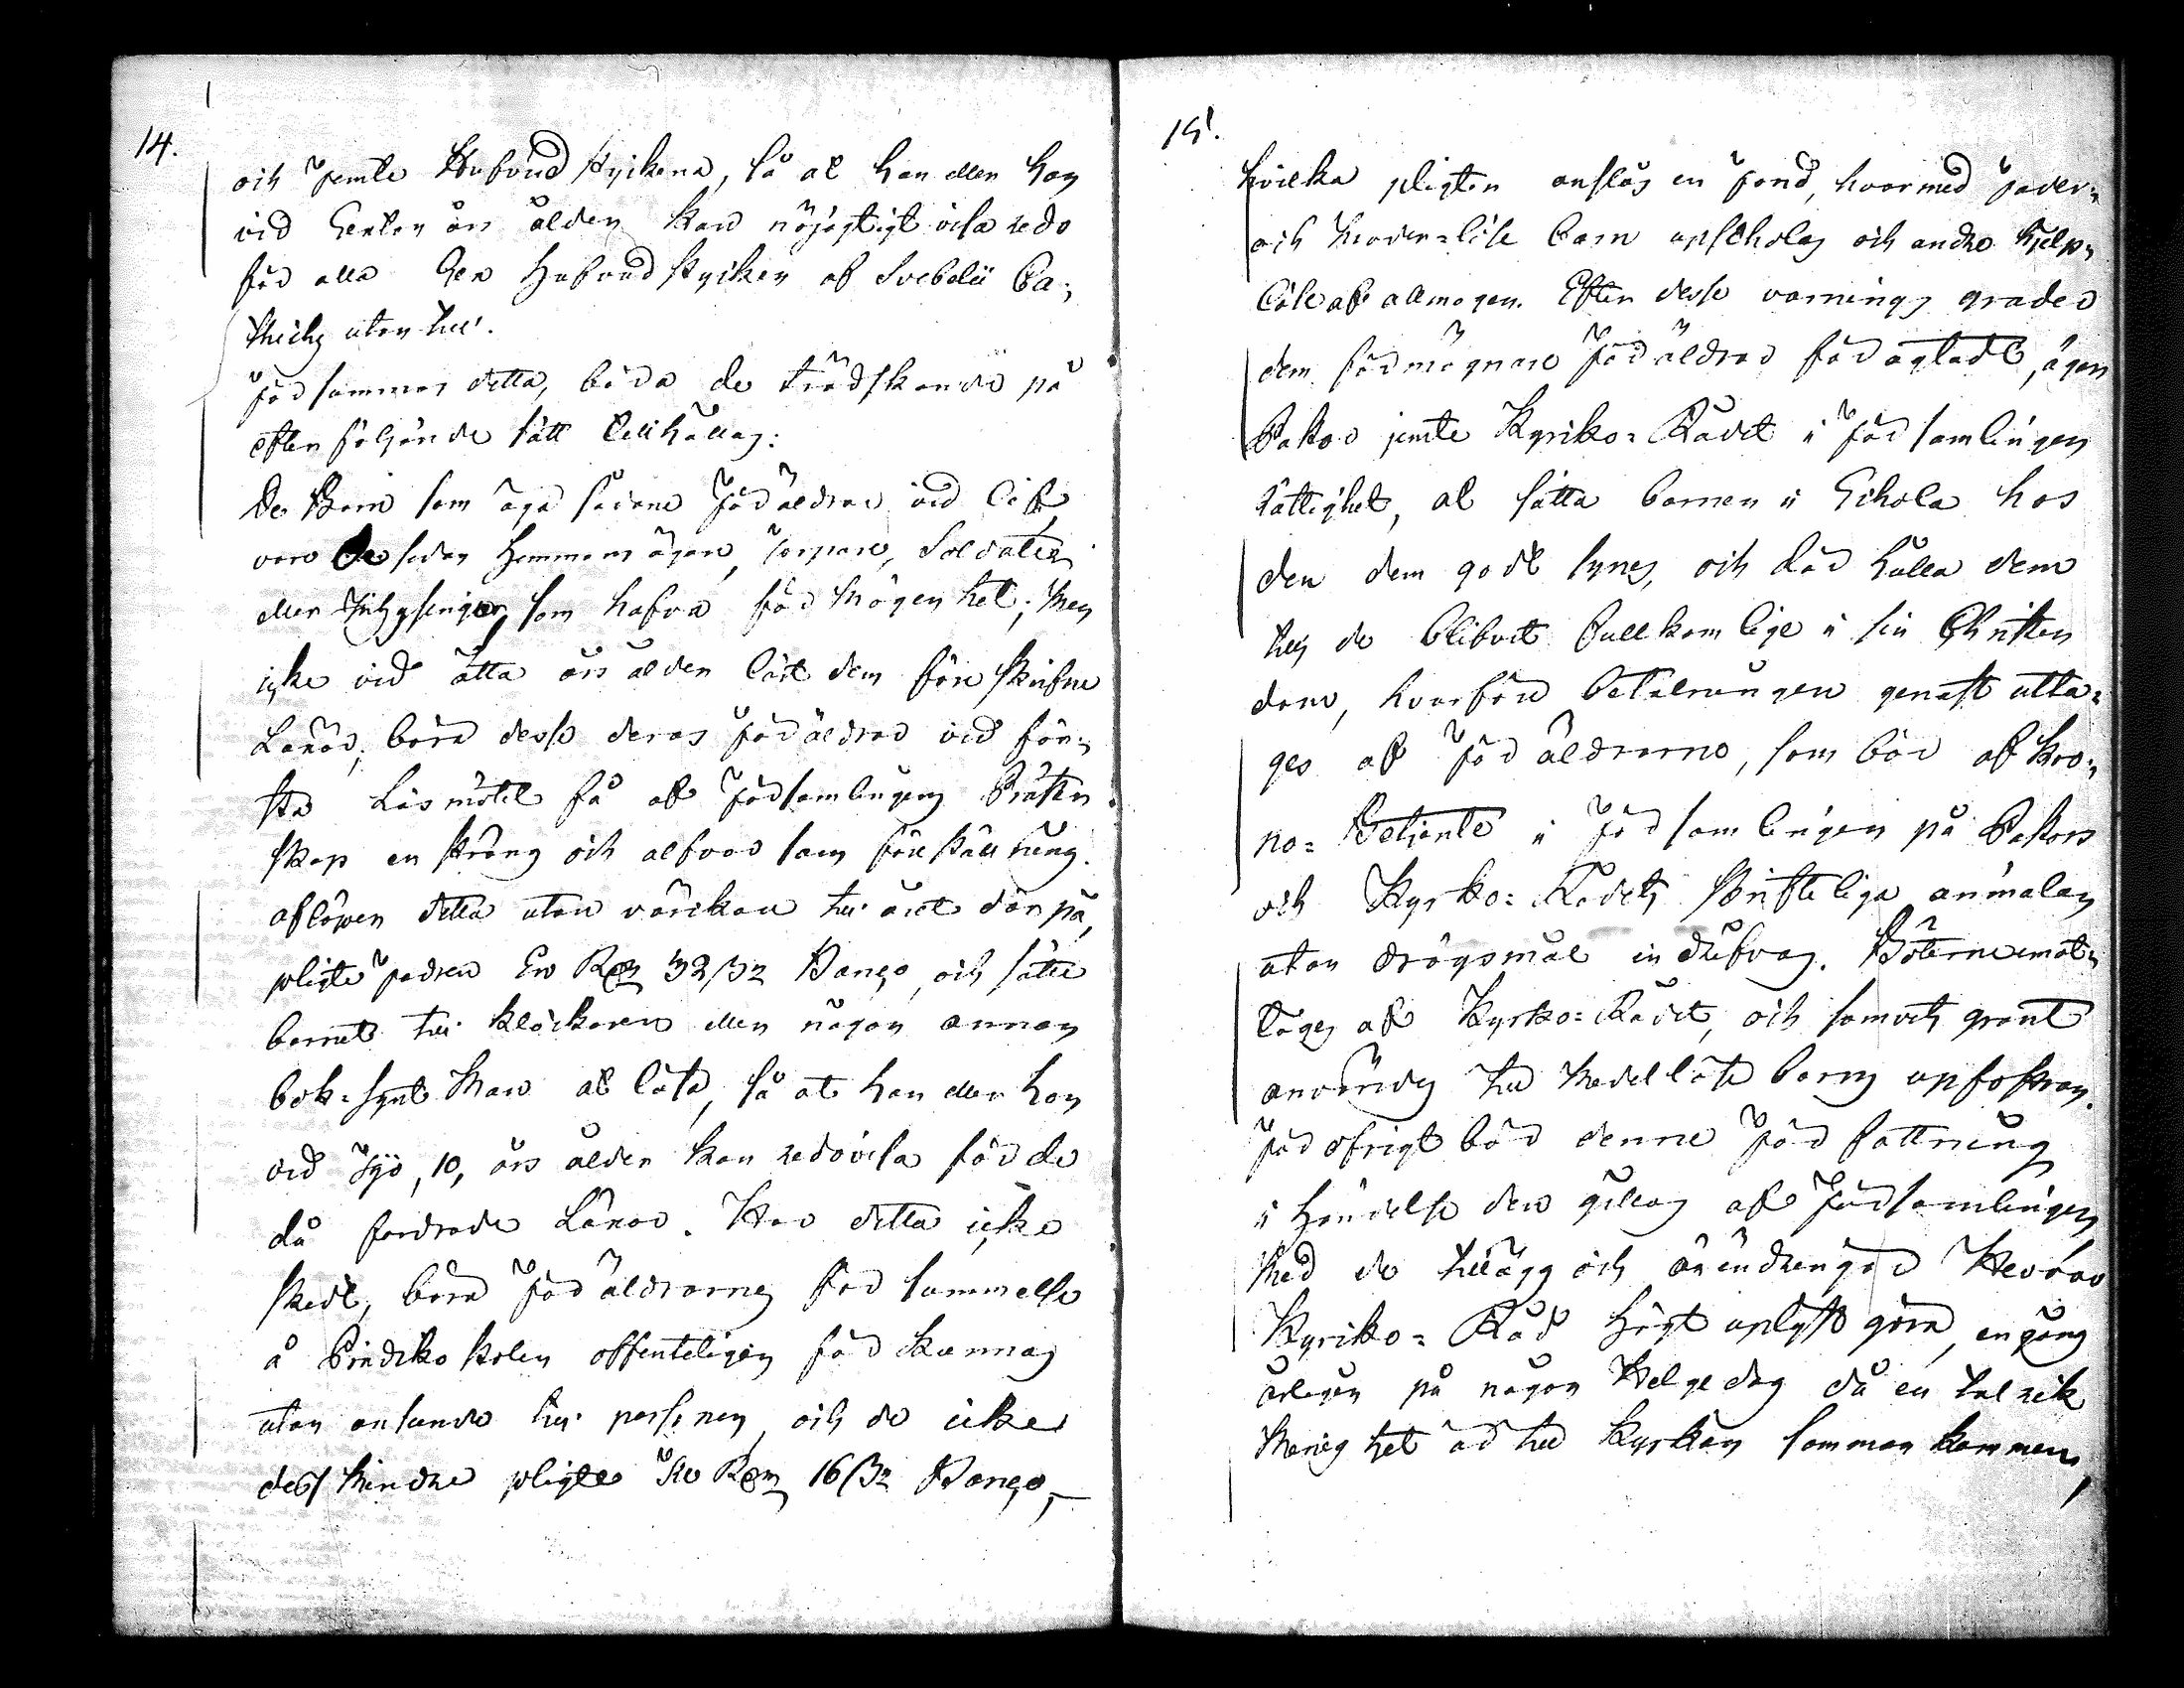 14.
och femte Hufvud stycken, så at han eller hon
vid Sexton års ålder kan nöjagtigt visa redo
för alla Sex Hufvud stycken af Svebelii Ca-
thechs utan till.
Försummas detta, böra de tredskande på
efter följande sätt tillhållas:
De Barn som äga sådane Föräldrar vid lif,
vare de sedan Hemmans ägare, Torpare, Soldater
eller Inhysingar, som hafva förmögenhet; Men
icke vid åtta års ålder läst dem före skrifne
Läxor, böra desse deras Föräldrar vid för-
sta Läsmötet få af Församlingens Präster-
skap en sträng och alfvarsam föreställning.
aflöper detta utan värkan till året där på,
plikte Fadren En Rdr 32/3 Banco, och sätte
barnet till Klockaren eller någon annan
bok-synt Man at läsa, så at han eller hon
vid Tijo, 10, års ålder kan redovisa för de
då fordrade Läxor. Har detta icke
skedt, böra Föräldrarnes försummelse
å Predikostolen offenteligen förkunnas
utan anseende till personen, och de icke
dess Mindre plikte Två Rdr 16/3 Banco,
15.
hvilka plikter anslås en Fond, hvarmed Fader-
och Moder-löse barn upscholas och andre hjelp-
löse af allmogen. Efter desse varnings grader
dem förmögnare Föräldrar föragtadt, äger
Pastor jemte Kyrko-Rådet i Församlingen
rättighet, at sätta barnen i Schola hos
den dem godt synes, och där hålla dem
tills de blifvit fullkomlige i sin Christen
dom, hvarföre betalningen genast utta-
ges af Föräldrarne, som bör af Kro-
no-Betjente i Församlingen på Pastors
och Kyrko-Rådets skrifteliga anmälan
utan drögsmål indrifvas. Böterne emot-
tages af Kyrko-Rådet, och samvets grant
användes till Medellöse barns upfostran.
För öfrigt bör denne Författning
i händelse den gillas af Församlingen,
Med de tillägg och ändringar
Kyrko-Råd högt uplyst göra, en gång
årligen på någon Helgedag då en talrik
Menighet är till Kyrkan sammankommen,